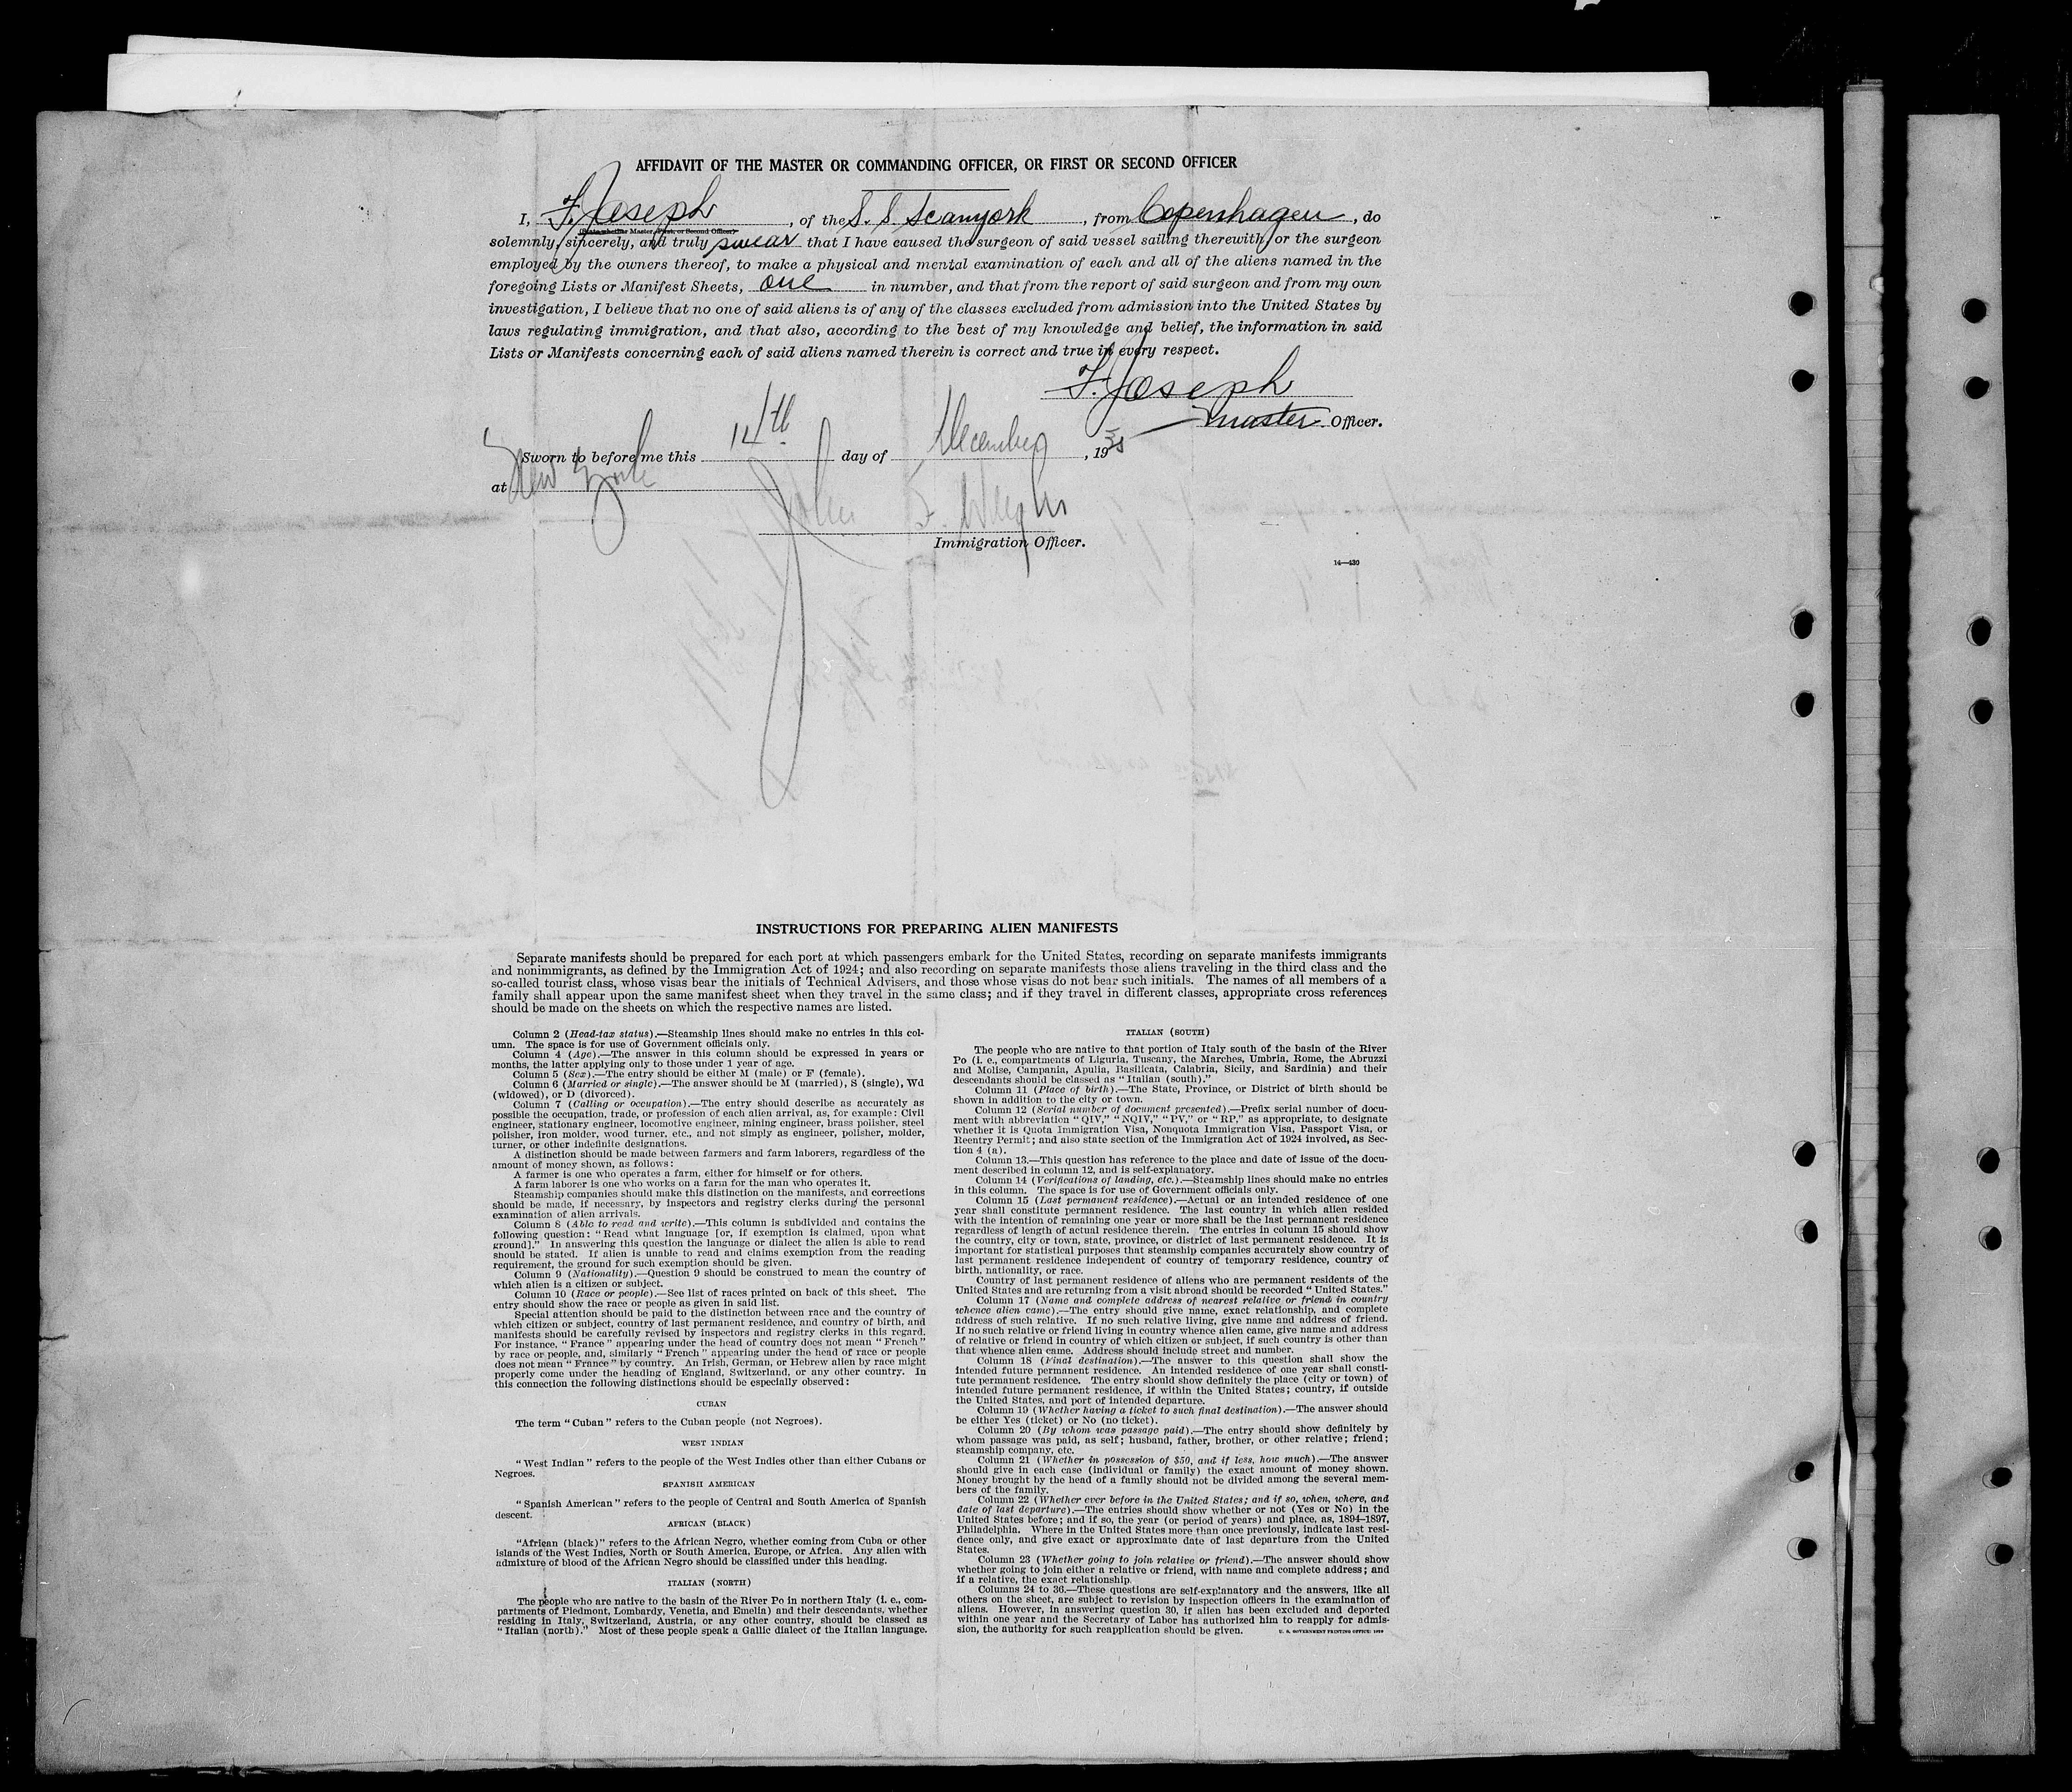 AFFIDAVIT OF THE MASTER OR COMMANDING OFFICER, OR FIRST OR SECOND OFFICER
I, F. Joseph, of the S. S. Scanyork, from Copenhagen, do
(State whether Master, First, or Second Officer)
solemnly, sincerely, and truly swear that I have caused the surgeon of said vessel sailing therewith, or the surgeon
employed by the owners thereof, to make a physical and mental examination of each and all of the aliens named in the
foregoing Lists or Manifest Sheets, one in number, and that from the report of said surgeon and from my own
investigation, I believe that no one of said aliens is of any of the classes excluded from admission into the United States by
laws regulating immigration, and that also, according to the best of my knowledge and belief, the information in said
Lists or Manifests concerning each of said aliens named therein is correct and true in every respect.
F. Joseph
Master Officer.
Sworn to before me this 14th day of December, 19
at New York
John F.
Immigration Officer.
14—430
INSTRUCTIONS FOR PREPARING ALIEN MANIFESTS
Separate manifests should be prepared for each port at which passengers embark for the United States, recording on separate manifests immigrants
and nonimmigrants, as defined by the Immigration Act of 1924; and also recording on separate manifests those aliens traveling in the third class and the
so-called tourist class, whose visas bear the initials of Technical Advisers, and those whose visas do not bear such initials. The names of all members of a
family shall appear upon the same manifest sheet when they travel in the same class; and if they travel in different classes, appropriate cross references
should be made on the sheets on which the respective names are listed.
Column 2 (Head-tax status).—Steamship lines should make no entries in this col-
umn. The space is for use of Government officials only.
Column 4 (Age).—The answer in this column should be expressed in years or
months, the latter applying only to those under 1 year of age.
Column 5 (Sex).—The entry should be either M (male) or F (female).
Column 6 (Married or single).—The answer should be M (married), S (single), Wd
(widowed), or D (divorced).
Column 7 (Calling or occupation).—The entry should describe as accurately as
possible the occupation, trade, or profession of each alien arrival, as, for example: Civil
engineer, stationary engineer, locomotive engineer, mining engineer, brass polisher, steel
polisher, iron molder, wood turner, etc., and not simply as engineer, polisher, molder,
turner, or other indefinite designations.
A distinction should be made between farmers and farm laborers, regardless of the
amount of money shown, as follows:
A farmer is one who operates a farm, either for himself or for others.
A farm laborer is one who works on a farm for the man who operates it.
Steamship companies should make this distinction on the manifests, and corrections
should be made, if necessary, by inspectors and registry clerks during the personal
examination of alien arrivals.
Column 8 (Able to read and write).—This column is subdivided and contains the
following question: "Read what language [or, if exemption is claimed, upon what
ground]." In answering this question the language or dialect the alien is able to read
should be stated. If alien is unable to read and claims exemption from the reading
requirement, the ground for such exemption should be given.
Column 9 (Nationality).—Question 9 should be construed to mean the country of
which alien is a citizen or subject.
Column 10 (Race or people).—See list of races printed on back of this sheet. The
entry should show the race or people as given in said list.
Special attention should be paid to the distinction between race and the country of
which citizen or subject, country of last permanent residence, and country of birth, and
manifests should be carefully revised by inspectors and registry clerks in this regard.
For instance, "France" appearing under the head of country does not mean "French"
by race or people, and, similarly "French" appearing under the head of race or people
does not mean "France" by country. An Irish, German, or Hebrew alien by race might
properly come under the heading of England, Switzerland, or any other country. In
this connection the following distinctions should be especially observed:
CUBAN
The term "Cuban" refers to the Cuban people (not Negroes).
WEST INDIAN
"West Indian" refers to the people of the West Indies other than either Cubans or
Negroes.
SPANISH AMERICAN
"Spanish American" refers to the people of Central and South America of Spanish
descent.
AFRICAN (BLACK)
"African (black)" refers to the African Negro, whether coming from Cuba or other
islands of the West Indies, North or South America, Europe, or Africa. Any alien with
admixture of blood of the African Negro should be classified under this heading.
ITALIAN (NORTH)
The people who are native to the basin of the River Po in northern Italy (i. e., com-
partments of Piedmont, Lombardy, Venetia, and Emelia) and their descendants, whether
residing in Italy, Switzerland, Austria, or any other country, should be classed as
"Italian (north)." Most of these people speak a Gallic dialect of the Italian language.
ITALIAN (SOUTH)
The people who are native to that portion of Italy south of the basin of the River
Po (i. e., compartments of Liguria, Tuscany, the Marches, Umbria, Rome, the Abruzzi
and Molise, Campania, Apulia, Basilicata, Calabria, Sicily, and Sardinia) and their
descendants should be classed as "Italian (south)."
Column 11 (Place of birth).—The State, Province, or District of birth should be
shown in addition to the city or town.
Column 12 (Serial number of document presented).—Prefix serial number of docu-
ment with abbreviation "QIV," "NQIV," "PV," or "RP," as appropriate, to designate
whether it is Quota Immigration Visa, Nonquota Immigration Visa, Passport Visa, or
Reentry Permit; and also state section of the Immigration Act of 1924 involved, as Sec-
tion 4 (a).
Column 13.—This question has reference to the place and date of issue of the docu-
ment described in column 12, and is self-explanatory.
Column 14 (Verifications of landing, etc.).—Steamship lines should make no entries
in this column. The space is for use of Government officials only.
Column 15 (Last permanent residence).—Actual or an intended residence of one
year shall constitute permanent residence. The last country in which alien resided
with the intention of remaining one year or more shall be the last permanent residence
regardless of length of actual residence therein. The entries in column 15 should show
the country, city or town, state, province, or district of last permanent residence. It is
important for statistical purposes that steamship companies accurately show country of
last permanent residence independent of country of temporary residence, country of
birth, nationality, or race.
Country of last permanent residence of aliens who are permanent residents of the
United States and are returning from a visit abroad should be recorded "United States."
Column 17 (Name and complete address of nearest relative or friend in country
whence alien came).—The entry should give name, exact relationship, and complete
address of such relative. If no such relative living, give name and address of friend.
If no such relative or friend living in country whence alien came, give name and address
of relative or friend in country of which citizen or subject, if such country is other than
that whence alien came. Address should include street and number.
Column 18 (Final destination).—The answer to this question shall show the
intended future permanent residence. An intended residence of one year shall consti-
tute permanent residence. The entry should show definitely the place (city or town) of
intended future permanent residence, if within the United States; country, if outside
the United States, and port of intended departure.
Column 19 (Whether having a ticket to such final destination).—The answer should
be either Yes (ticket) or No (no ticket).
Column 20 (By whom was passage paid).—The entry should show definitely by
whom passage was paid, as self; husband, father, brother, or other relative; friend;
steamship company, etc.
Column 21 (Whether in possession of $50, and if less, how much).—The answer
should give in each case (individual or family) the exact amount of money shown.
Money brought by the head of a family should not be divided among the several mem-
bers of the family.
Column 22 (Whether ever before in the United States; and if so, when, where, and
date of last departure).—The entries should show whether or not (Yes or No) in the
United States before; and if so, the year (or period of years) and place, as, 1894–1897,
Philadelphia. Where in the United States more than once previously, indicate last resi-
dence only, and give exact or approximate date of last departure from the United
States.
Column 23 (Whether going to join relative or friend).—The answer should show
whether going to join either a relative or friend, with name and complete address; and
if a relative, the exact relationship.
Columns 24 to 36.—These questions are self-explanatory and the answers, like all
others on the sheet, are subject to revision by inspection officers in the examination of
aliens. However, in answering question 30, if alien has been excluded and deported
within one year and the Secretary of Labor has authorized him to reapply for admis-
sion, the authority for such reapplication should be given.
U. S. GOVERNMENT PRINTING OFFICE: 1929